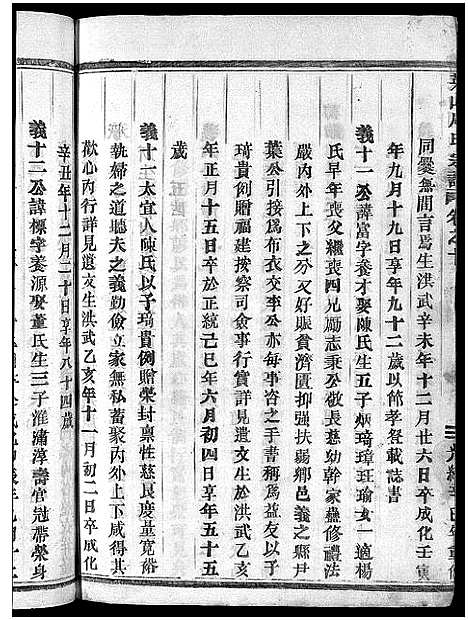 同爨無間言焉生洪武辛未年十二月廿六日卒成化壬寅
年九月十九日享年九十二歲以節孝登載誌書
義十一公諱富字養才娶陳氏生五子炳琦璋珏瑜女一適楊
氏早年喪父繼喪四兄勵志秉公敬長慈幼幹家蠱修禮法
嚴內外上下之分又好賑貧濟匱抑強扶弱鄉邑義之縣尹
葉公引接為布衣交事公亦每事咨之手書稱為益友以子
琦貴例贈福建按察司僉事行實詳見遺文生於洪武乙亥
年正月十五日卒於正統己巳年六月初四日享年五十五
歲
義十一太宜人陳氏以子琦貴例贈榮封稟性慈良度量寬裕
執婦之道嘅夫之義勤儉立家無私蓄聚內外上下咸得其
歡心內行詳見遺文生洪武乙亥年十一月初二日卒成化
辛丑年十二月二十日享年八十四歲
義十二公諱標字養源娶董氏生三子淮瀟淳壽官冠帶榮身